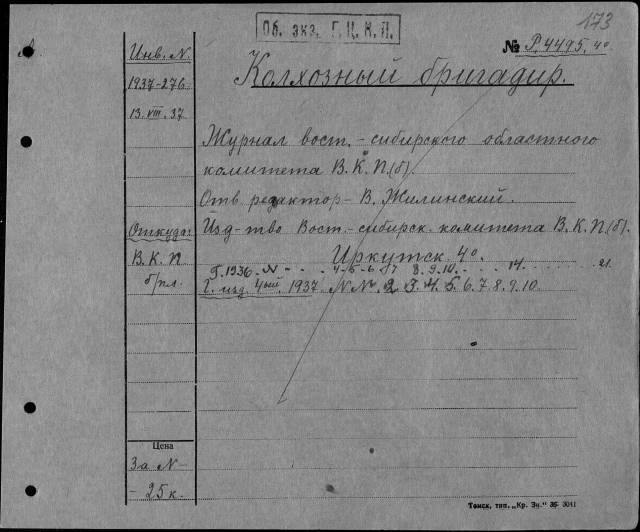 173
Об. экз. Г.Ц.К.П.
№ Р.4495. 4°
Инв. N.
1937-276
13.VIII.37
Колхозный бригадир.
Журнал вост.-сибирского областного
комитета В.К.П.(б).
Отв. редактор - В. Жилинский.
Откуда:
В.К.П
б/пл.
Изд-тво Вост.-сибирск. комитета В.К.П.(б).
Иркутск. 4°.
Г. 1936 - N - . . 4-5-6-7 8.9.10 . . . 14 . . . 21
Г. изд. 4ый. 1937 N N. 2 3. 4. 5. 6. 7. 8. 9. 10.
Цена
За N -
- 25 к.
Томск, тип. „Кр. Зн." 36 3041